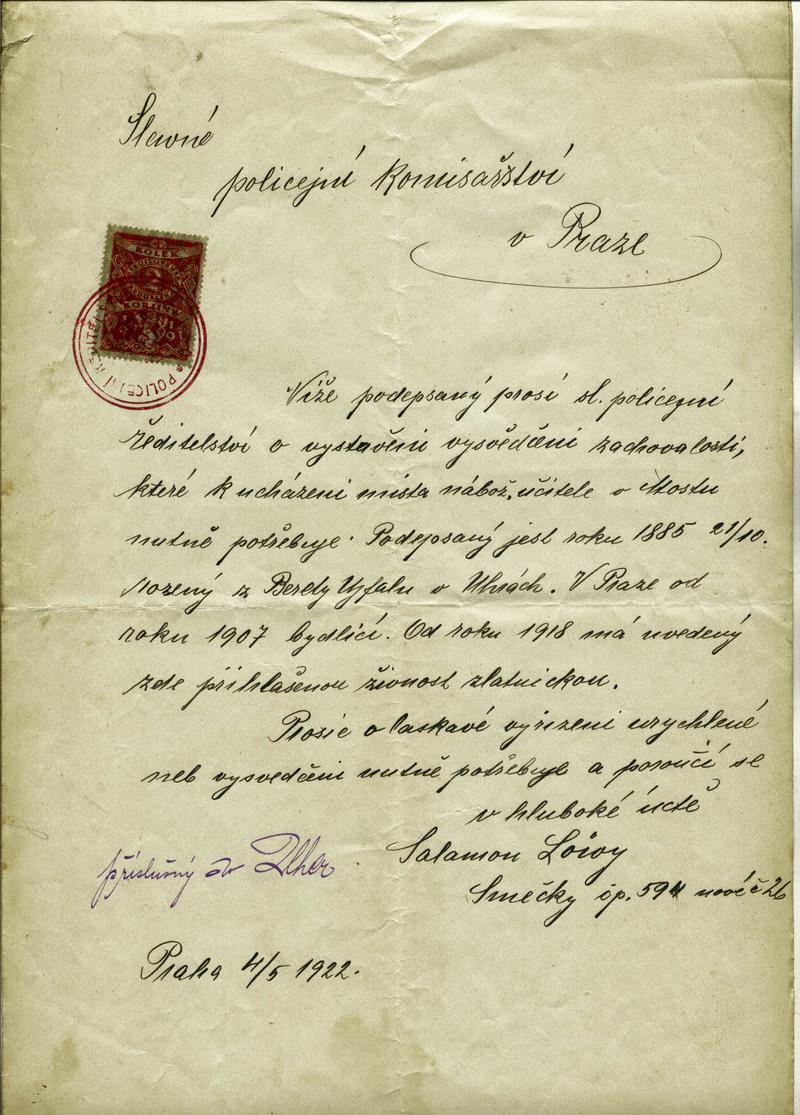 Slavné
policejní komisařství
v Praze
KOLEK
2
KORUNY
POLICEJNÍ ŘEDITEL
Níže podepsaný prosí sl. policejní
ředitelství o vystavění vysvědčení zachovalosti,
které k ucházení místa nábož. učitele v Mostu
nutně potřebuje. Podepsaný jest roku 1885 21/10.
rozený z Beretty Ujfalu v Uhrách. V Praze od
roku 1907 bydlící. Od roku 1918 má uvedený
zde přihlášenou živnost zlatnickou.
Prosíc o laskavé vyřízení urychlené
neb vysvedčení nutně potřebuje a poroučí se
v hluboké úctě
Salamon Löwy
Smečky čp. 594 nové č 26
příslušný do
Praha 4/5 1922.